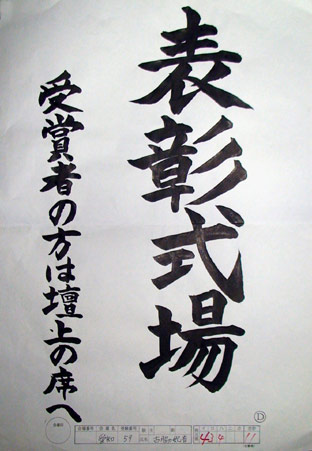 表彰式場
受賞者の方は壇上の席へ
D
59
434
11